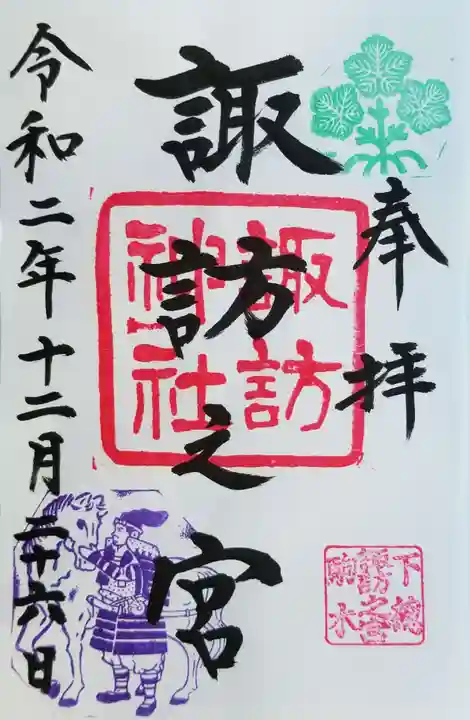 奉拝
諏訪之宮
諏訪
神社
令和二年十二月二十六日
下櫛
諏訪之宮
駒水